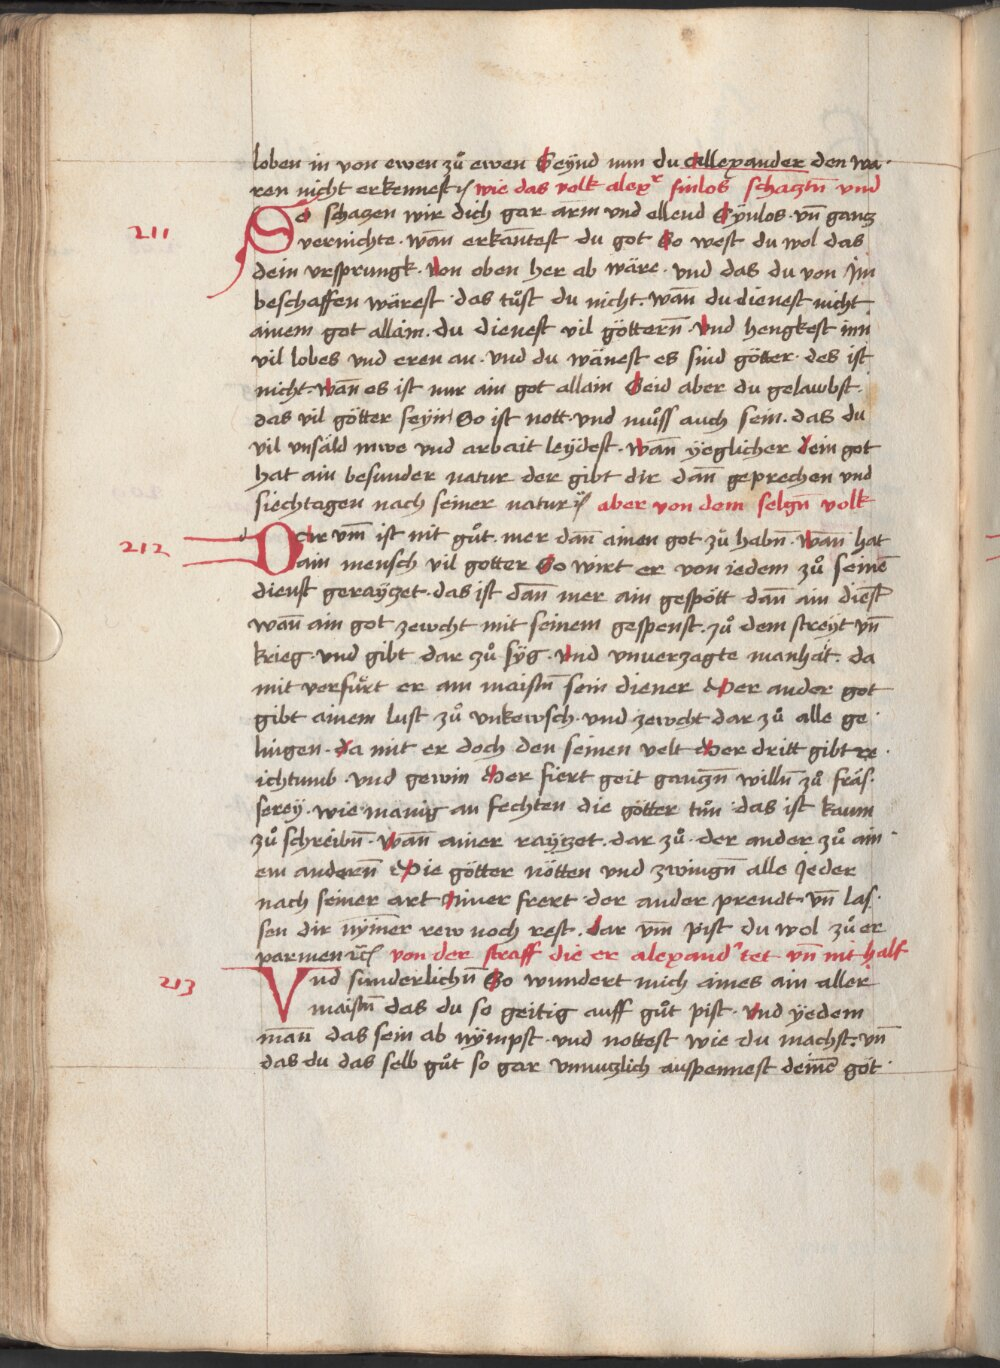 loben in von ewen zů ewen Seÿnd nun du Allexander den wa·
ren nicht erkennest wie das volk alexr sinlos schacztn̄ vnd
211
So schaczen wir dich gar arm vnd ellend Sÿnlos · vn̄ gancz
vernichte · wan̄ erkantest du got So west du wol das
dein vrsprungk · Von oben her ab wäre · vnd das du von Im
beschaffen wärest · das tůst du nicht · wan̄ du dienest nicht
ainem got allain · du dienest vil göttern̄ · Vnd hengkest inn
vil lobes vnd eren an · vnd du wänest es sind götter · des ist
nicht · Wan̄ es ist nur ain got allain Seid aber du gelawbst ·
das vil götter seyin So ist nott · vnd můss auch sein · das du
vil vnsäld mwe vnd arbait leÿdest · Wan̄ ÿeglicher dein got
hat ain besunder natur der gibt dir dan̄ geprechen vnd
siechtagen nach seiner natur aber von dem selgn̄ volk
212
Dar vm̄ ist nit gůt · mer dan̄ ainen got zů habn̄ · Wan̄ hat
ain mensch vil gotter So wirt er von iedem zů seinē
dienst geraÿczet · das ist dan̄ mer ain gespött dan̄ ain dienst
wan̄ ain got zewcht mit seinem gespenst · zů dem streÿt vn̄
krieg · vnd gibt dar zů sÿg · Vnd vnuerzagte manhät · da
mit verfürt er am maistn̄ sein diener Der ander got
gibt ainem lust zů vnkewsch · vnd zewcht dar zů alle ge ·
lingen · da mit er doch den seinen velt Der dritt gibt re ·
ichtumb · vnd gewin Der fiert geit ganczn̄ willn̄ zů fräs ·
serey · wie manig an fechten die götter tůn · das ist kaum
zů schreibn̄ · Wan̄ ainer rayczet · dar zů · der ander zů ain ·
em andern̄ Die götter nötten vnd zwingn̄ alle Jeder
nach seiner art Ainer frert · der ander prendt · vn̄ las ·
sen dir nÿm̄er rew noch rest · dar vm̄ pist du wol zů er
parmen von der straff die er alexand' tet vn̄ nit half
213
Vnd sunderlichn̄ So wundert mich aines ain aller
maistn̄ das du so geitig auff gůt pist · Vnd ÿedem
man̄ das sein ab nÿmpst · vnd nottest wie du machst · vn̄
das du das selb gůt so gar vnnuczlich auspennest deinē göt ·